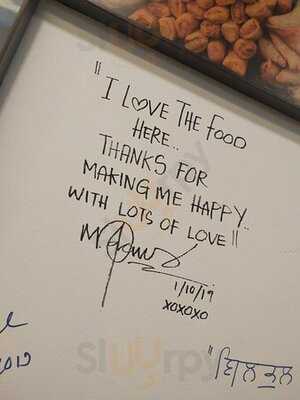 "I LOVE THE FOOD
HERE..
THANKS FOR
MAKING ME HAPPY..
WITH LOTS OF LOVE"
1/10/19
XOXOXO
sluurpy